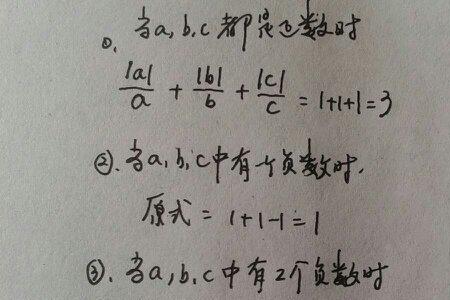 ①. 当a, b, c 都是正数时
|a|/a + |b|/b + |c|/c = 1+1+1=3
②. 当a, b, c中有一个负数时.
原式 = 1+1-1=1
③. 当a, b, c中有2个负数时